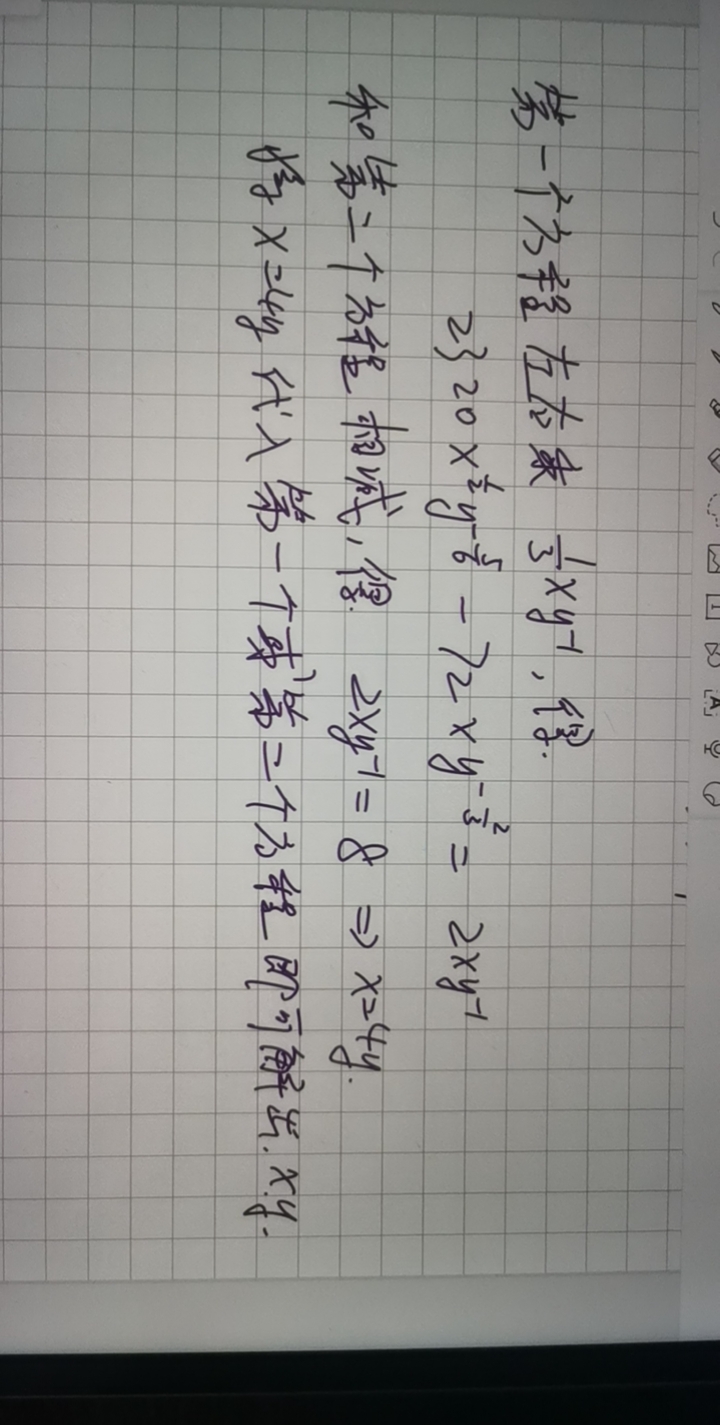 第一个方程左右乘 1/3 xy⁻¹，得.
2320 x^{1/2} y^{-5/6} - 72 x y^{-2/3} = 2xy⁻¹
和第二个方程相减，得. 2xy⁻¹ = 8 ⇒ x=4y.
将 x=4y 代入第一个或第二个方程即可解出.x.y.